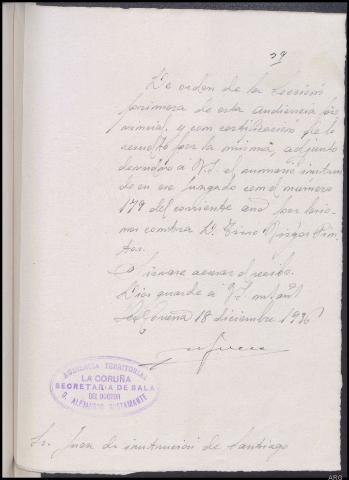 29
De orden de la Sección
primera de esta audiencia pro
vincial, y con certificación de lo
resuelto por la misma, adjunto
devuelvo á V.S. el sumario instrui
do en ese juzgado con el número
179 del corriente año por
contra D.
Sírvase acusar el recibo.
Dios guarde á V.S. m. añ.s
La Coruña 18 diciembre 1936
AUDIENCIA TERRITORIAL
LA CORUÑA
SECRETARIA DE SALA
DEL DOCTOR
D. ALEJANDRO BUSTAMANTE
Sr. Juez de instrucción de Santiago
ARG